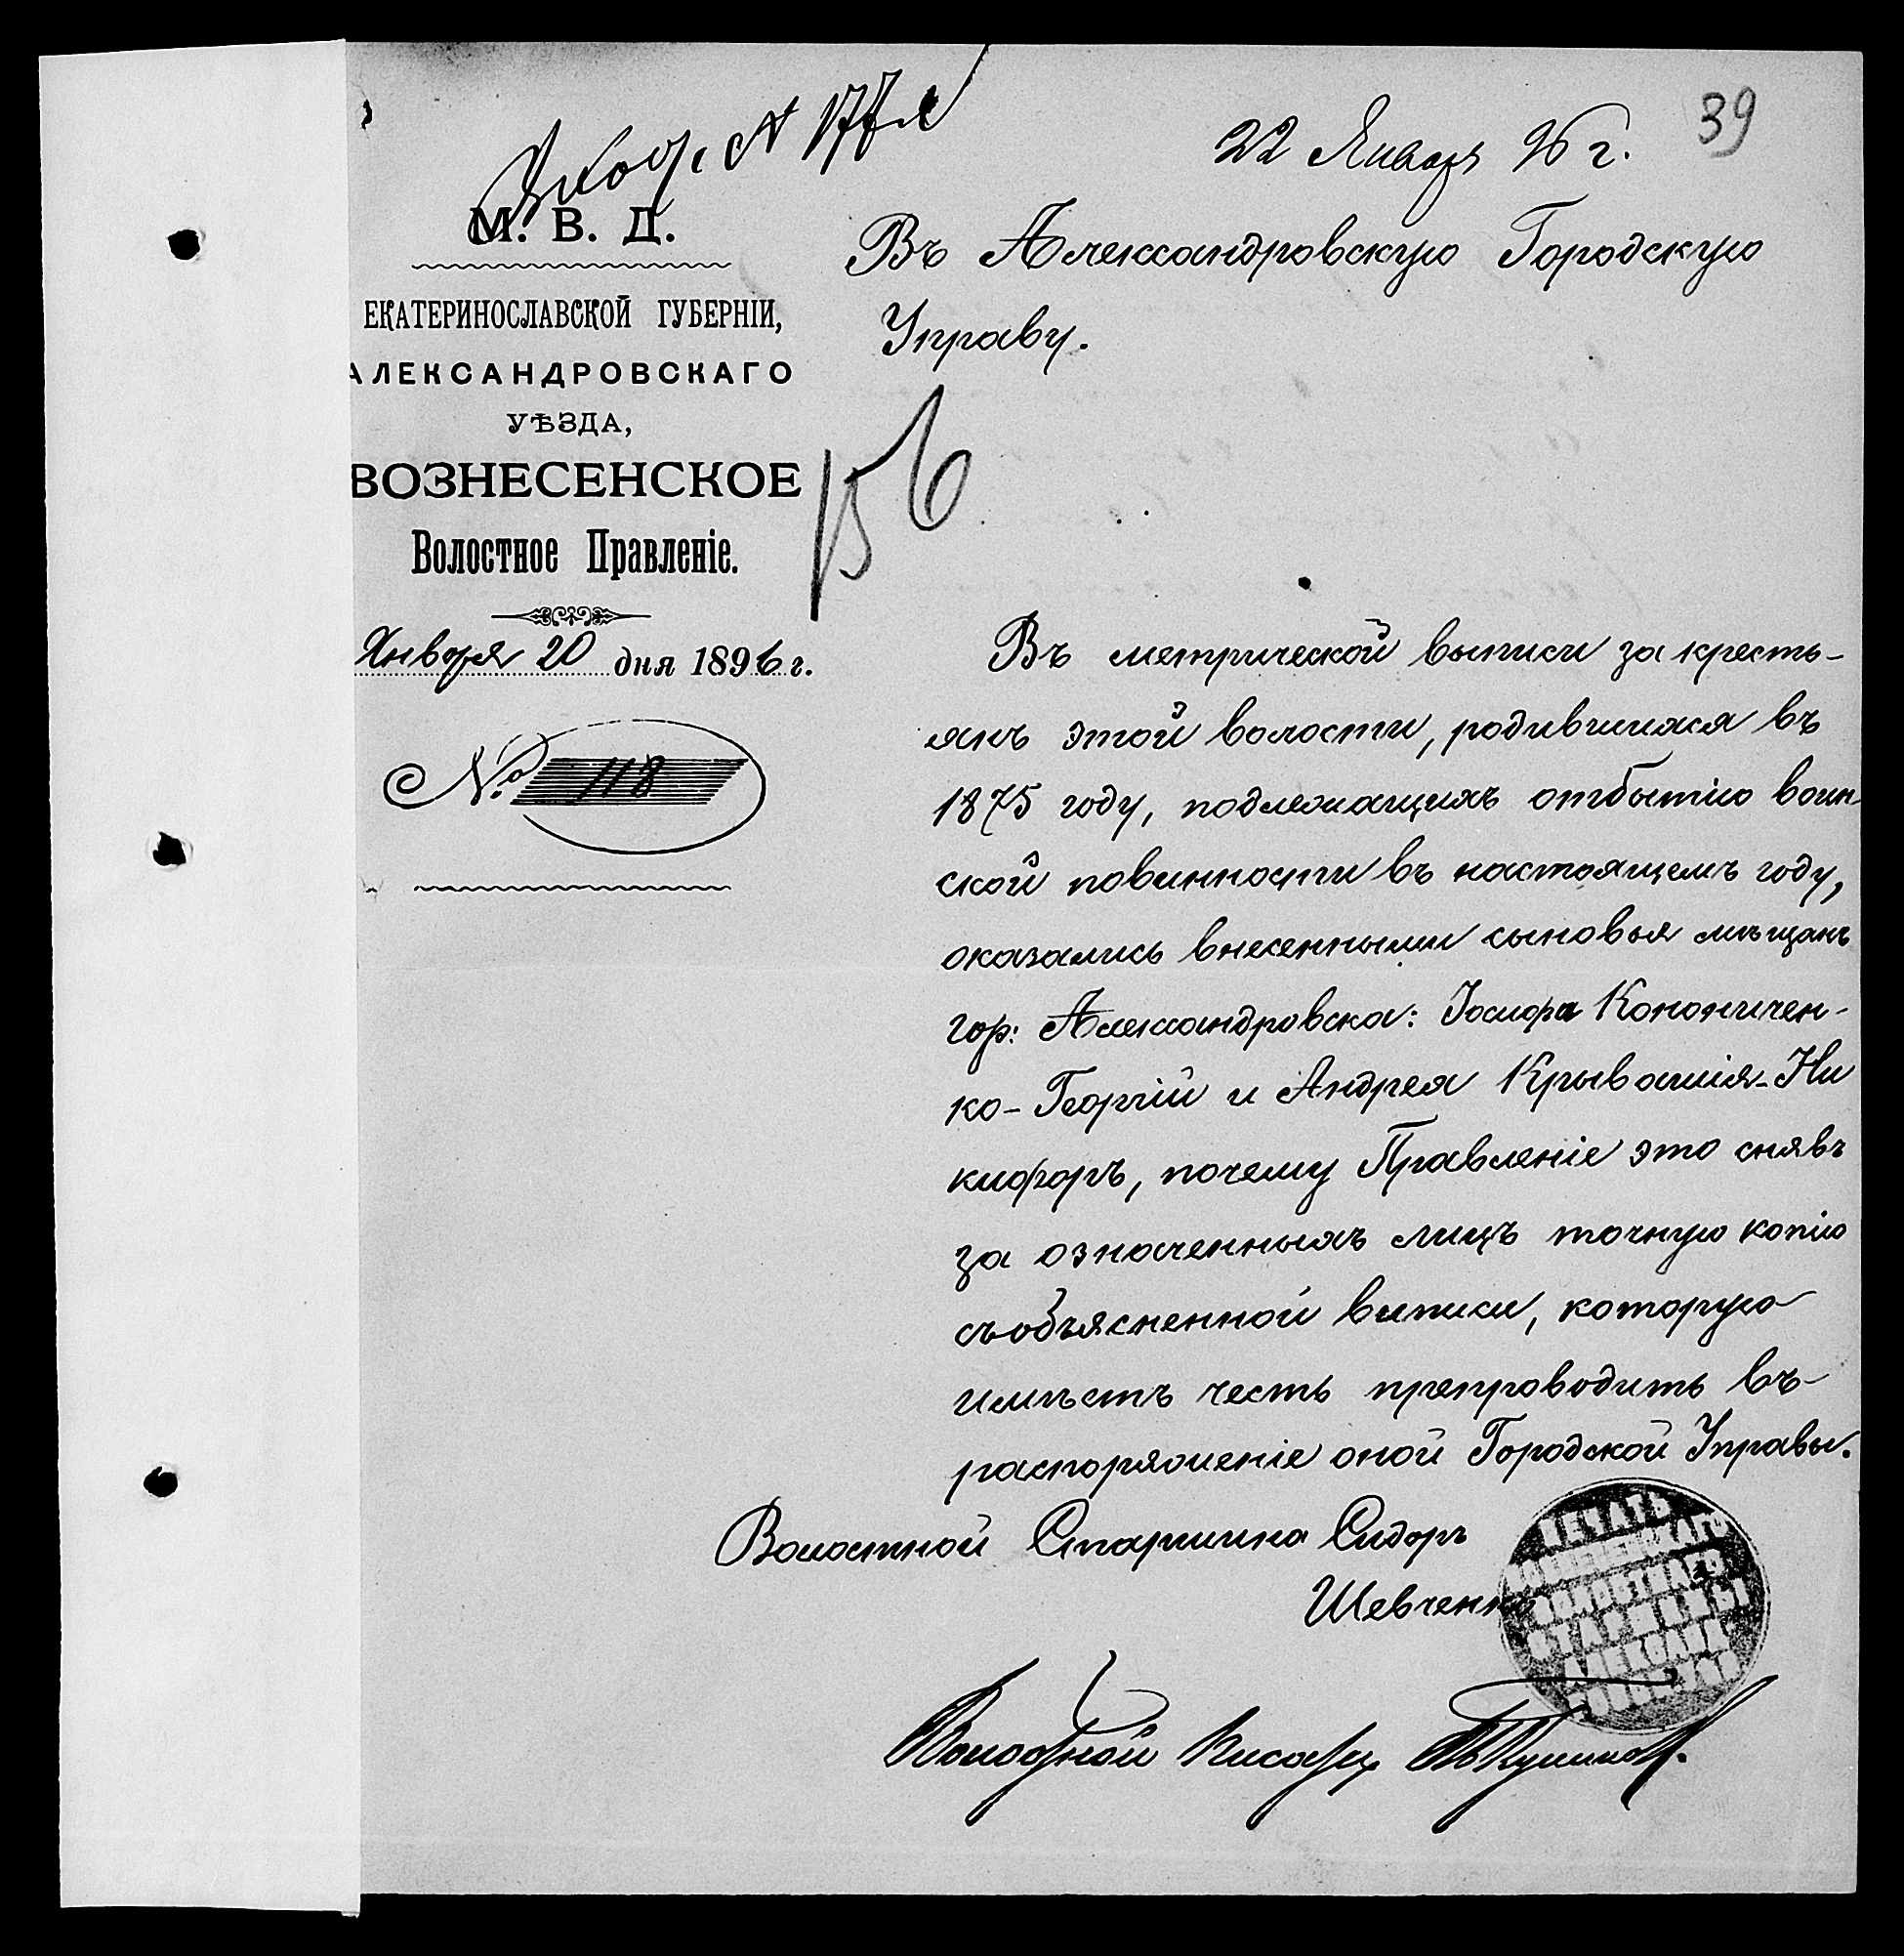 39
22 Января 96 г.
М. В. Д.
ЕКАТЕРИНОСЛАВСКОЙ ГУБЕРНІИ,
АЛЕКСАНДРОВСКАГО
УѢЗДА,
ВОЗНЕСЕНСКОЕ
Волостное Правленіе.
Января 20 дня 1896 г.
№ 118
Въ Александровскую Городскую
Управу.
Въ метрической выписи за кресть-
янъ этой волости, родившихся въ
1875 году, подлежащихъ отбытію воин
ской повинности въ настоящемъ году,
оказались внесенными сыновья мѣщанъ
гор: Александровска: Іосифа Кононичен-
ко - Георгій и Андрея Крывошія - Ни
кифоръ, почему Правленіе это снявъ
за означенныхъ лицъ точную копію
съ объясненной выписи, которую
имѣетъ честь препроводить въ
распоряженіе оной Городской Управы.
Волостной Старшина Сидоръ
Шевченко
ПЕЧАТЬ
ВОЗНЕСЕНСКАГО
ВОЛОСТНАГО
СТАРШИНЫ
АЛЕКСАНД
Волостной Писарь